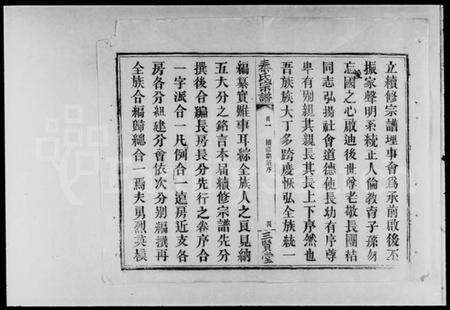 立續修宗譜理事會爲承前啟後丕
振家聲明系統正人倫教育子孫勿
忘國之心啟迪後世尊老敬長團結
同志弘揚社會道德使長幼有序尊
卑有別親其親長其長上下序然也
吾族族大丁多跨慶恢弘全族統一
秦氏宗譜
卷一
續修新譜序
三賢堂
編纂實難事耳綜全族人之良見納
五大分之銘言本屆續修宗譜先分
撰後合編長房長分先行之卷序合
一字派合一凡例合一遠房近支各
房各分組建分會依次分別編撰再
全族合編歸總合一焉夫勇烈英模